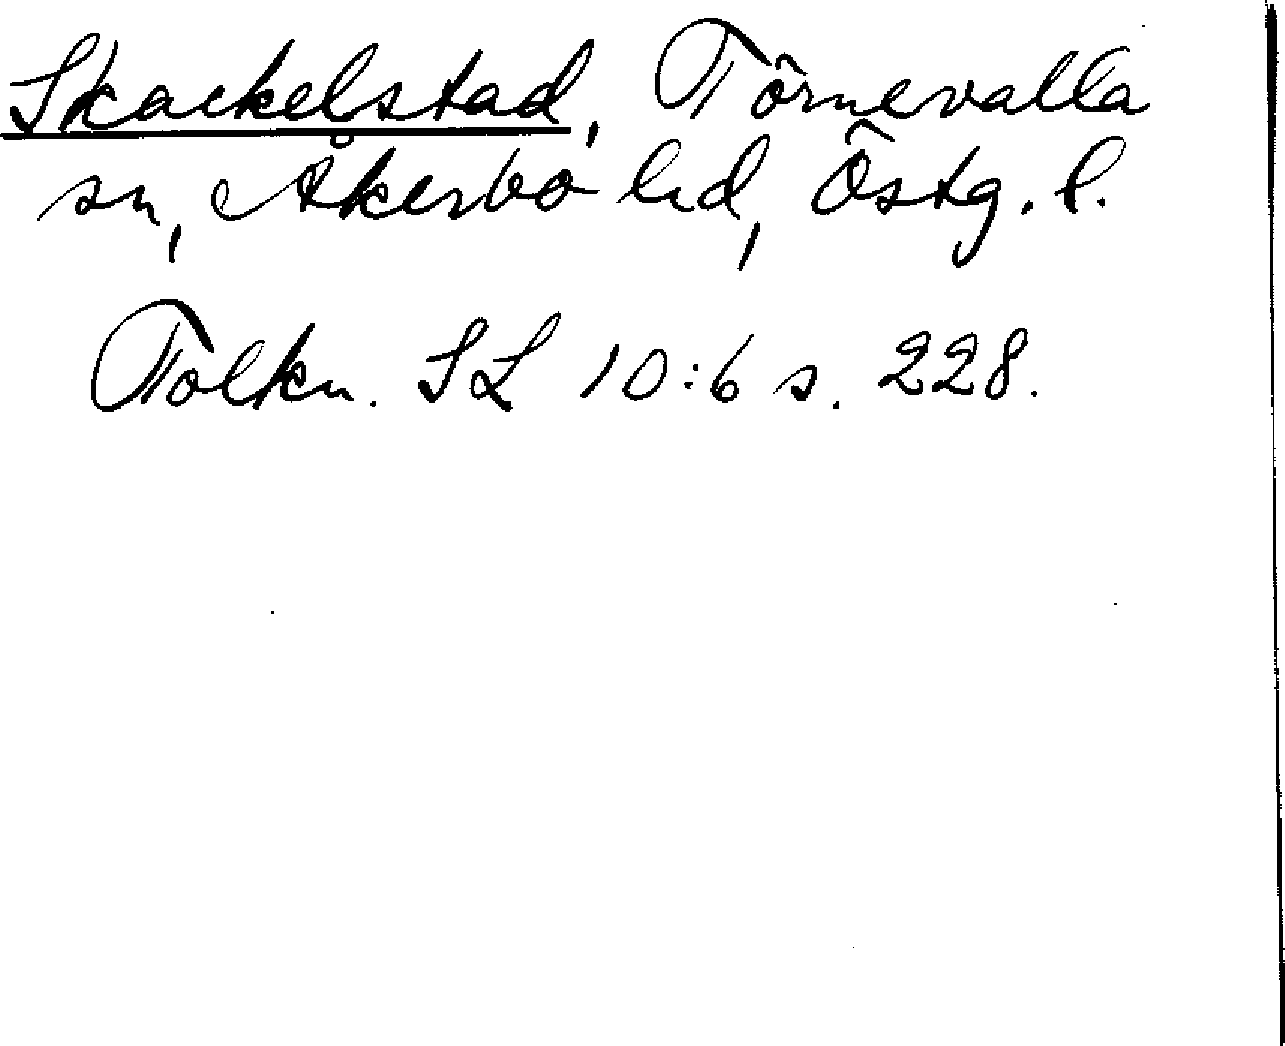 Skackelstad, Törnevalla
sn, Åkerbo hd, Östg. l.
Tolkn. SL 10:6 s. 228.